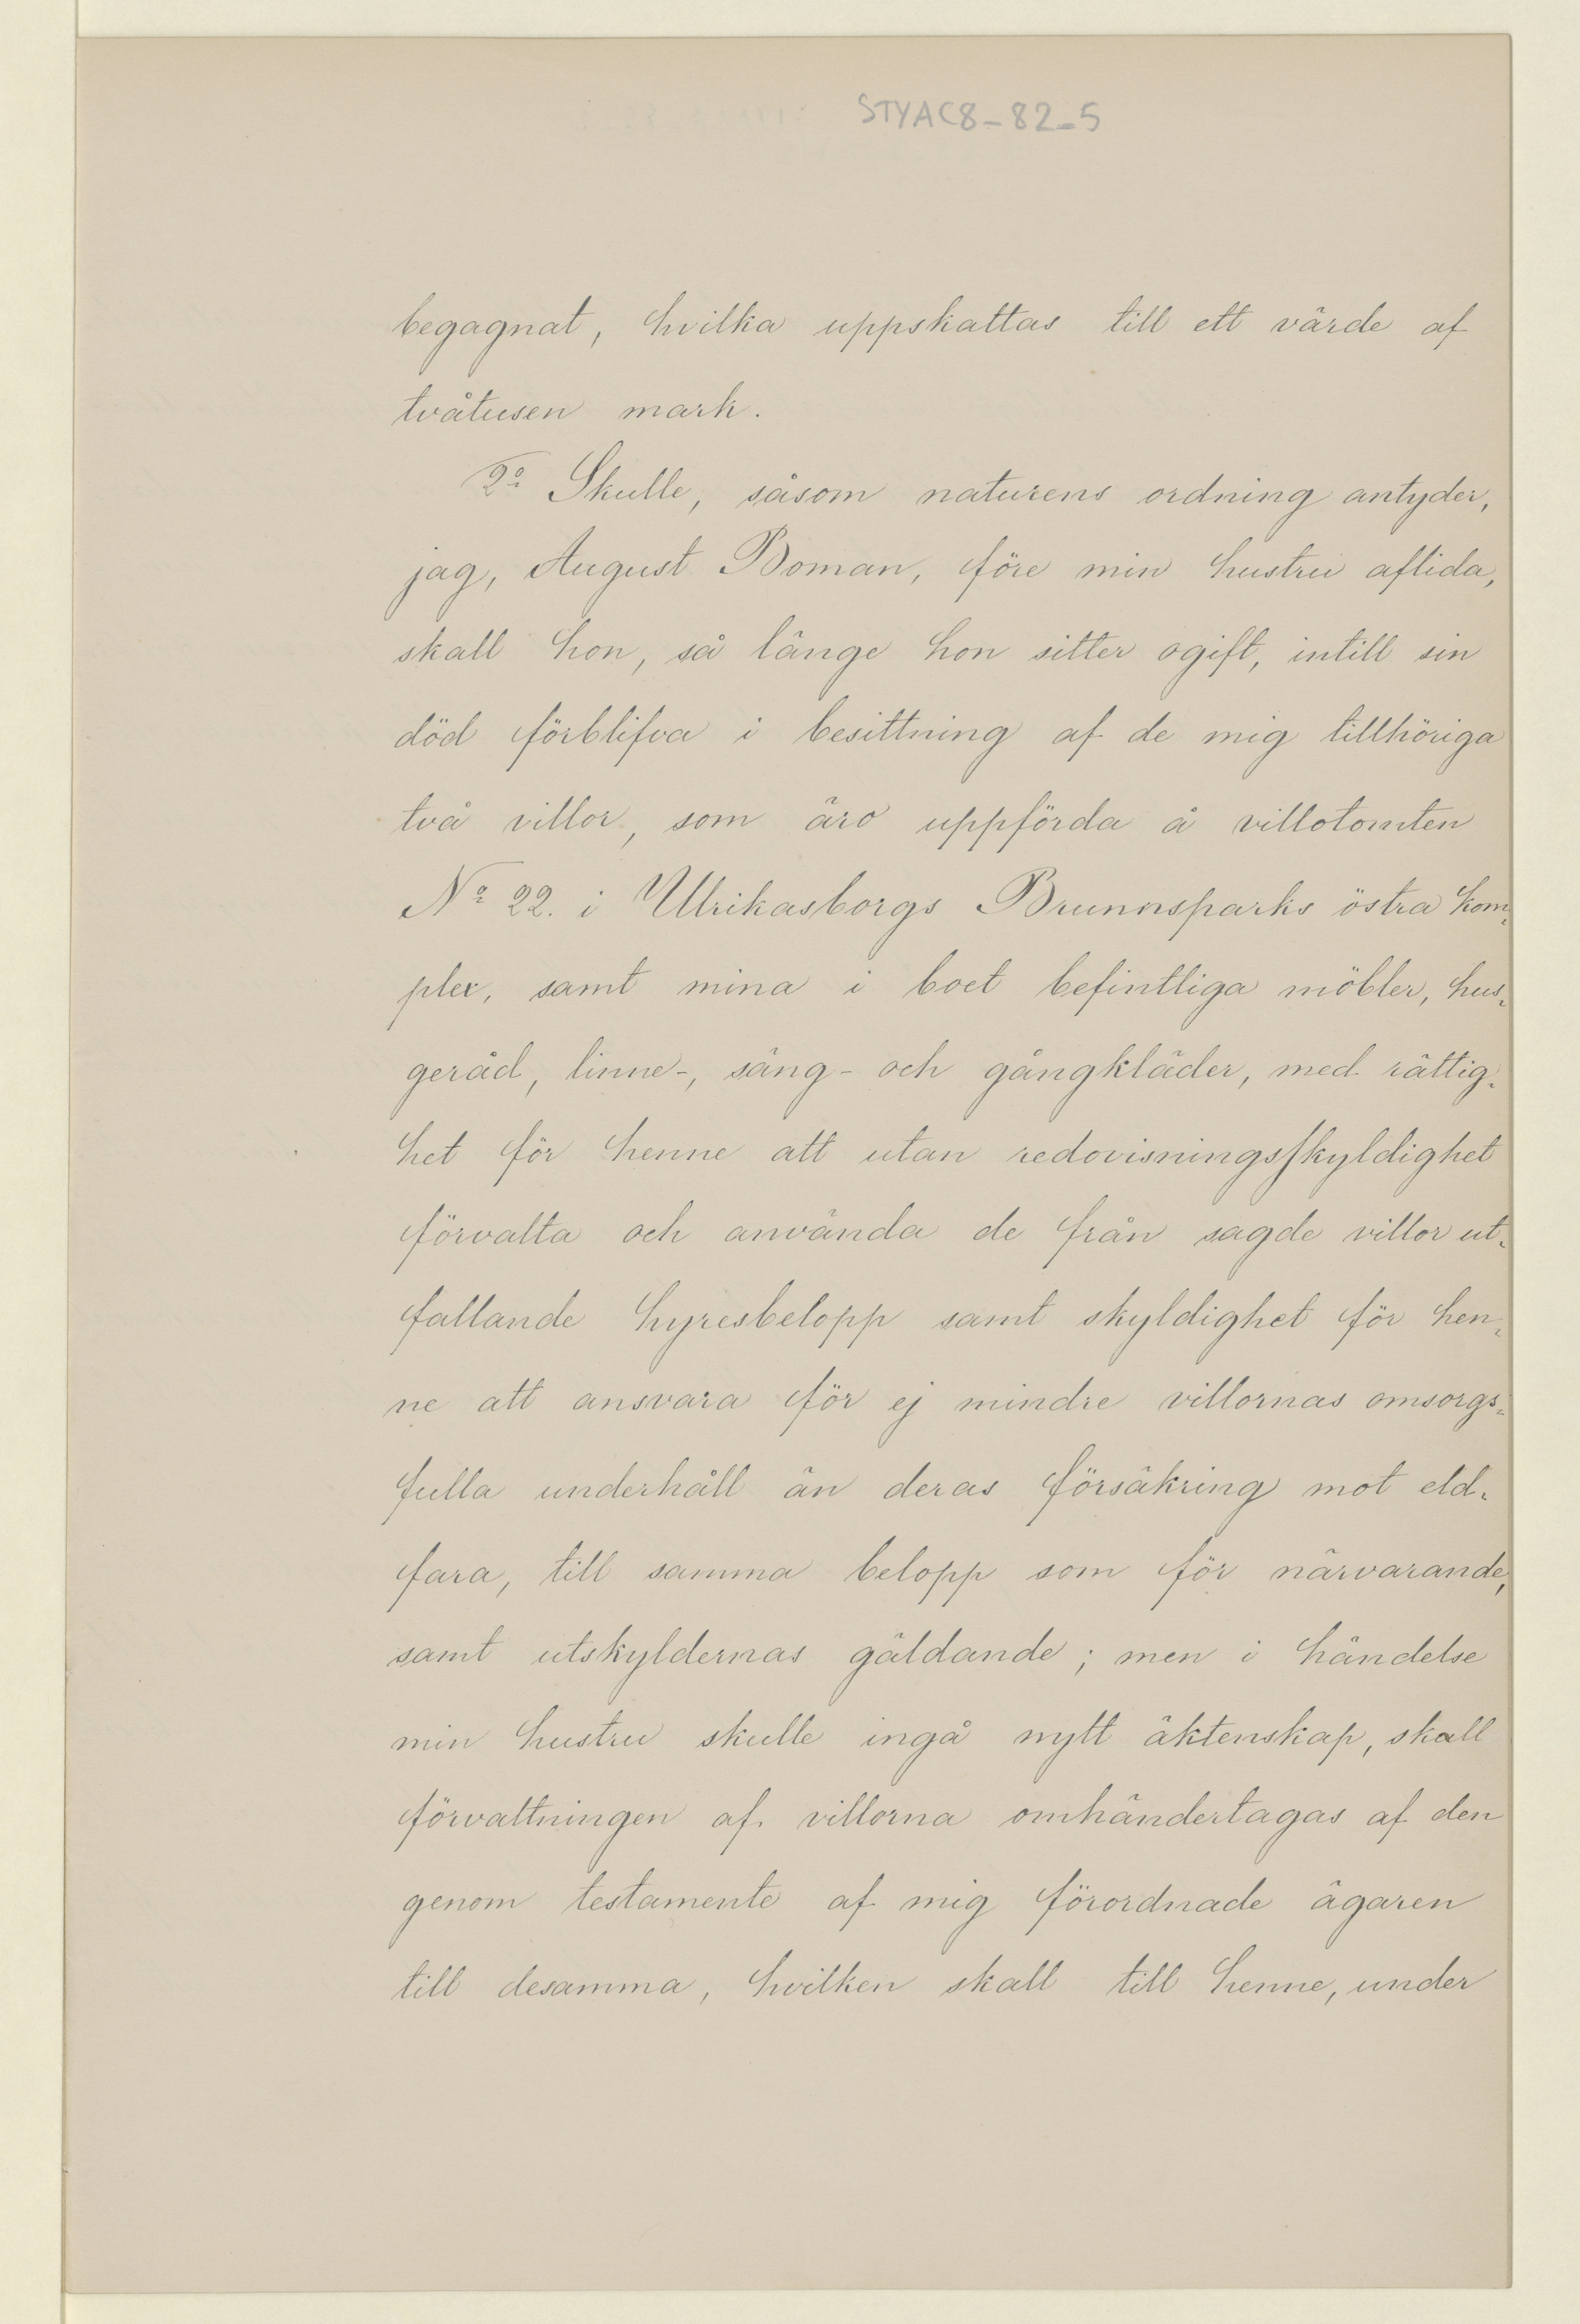 STYAC8-82-5
begagnat, hvilka uppskattas till ett värde af
tvåtusen mark.
2o Skulle, såsom naturens ordning antyder,
jag, August Boman, före min hustru aflida,
skall hon, så länge hon sitter ogift, intill sin
död förblifva i besittning af de mig tillhöriga
två villor, som äro uppförda å villotomten
No 22. i Ulrikasborgs Brunnsparks östra kom-
plex, samt mina i boet befintliga möbler, hus-
geråd, linne-, säng- och gångkläder, med rättig-
het för henne att utan redovisningsskyldighet
förvalta och använda de från sagde villor ut-
fallande hyresbelopp samt skyldighet för hen-
ne att ansvara för ej mindre villornas omsorgs-
fulla underhåll än deras försäkring mot eld-
fara, till samma belopp som för närvarande,
samt utskyldernas gäldande; men i händelse
min hustru skulle ingå nytt äktenskap, skall
förvaltningen af villorna omhändertagas af den
genom testamente af mig förordnade ägaren
till desamma, hvilken skall till henne, under